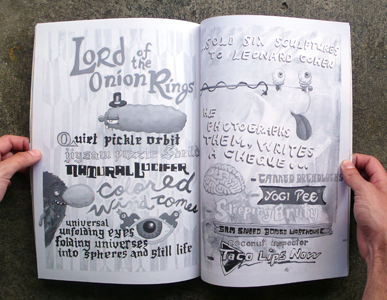 Lord of the
Onion Rings
Quiet pickle orbit
jigsaw puzzle
NATURAL LUCIFER
colored
wind comes
universal
unfolding eyes
folding universes
into spheres and still life
SOLD SIX SCULPTURES
TO LEONARD COHEN
HE
PHOTOGRAPHS
THEM, WRITES
A CHEQUE...
CANNED ORTHODOXY
YOGI PEE
Sleeping Bruty
SAM SNEED BOMBS WAREHOUSE
coconut inspector
Taco Lips Now